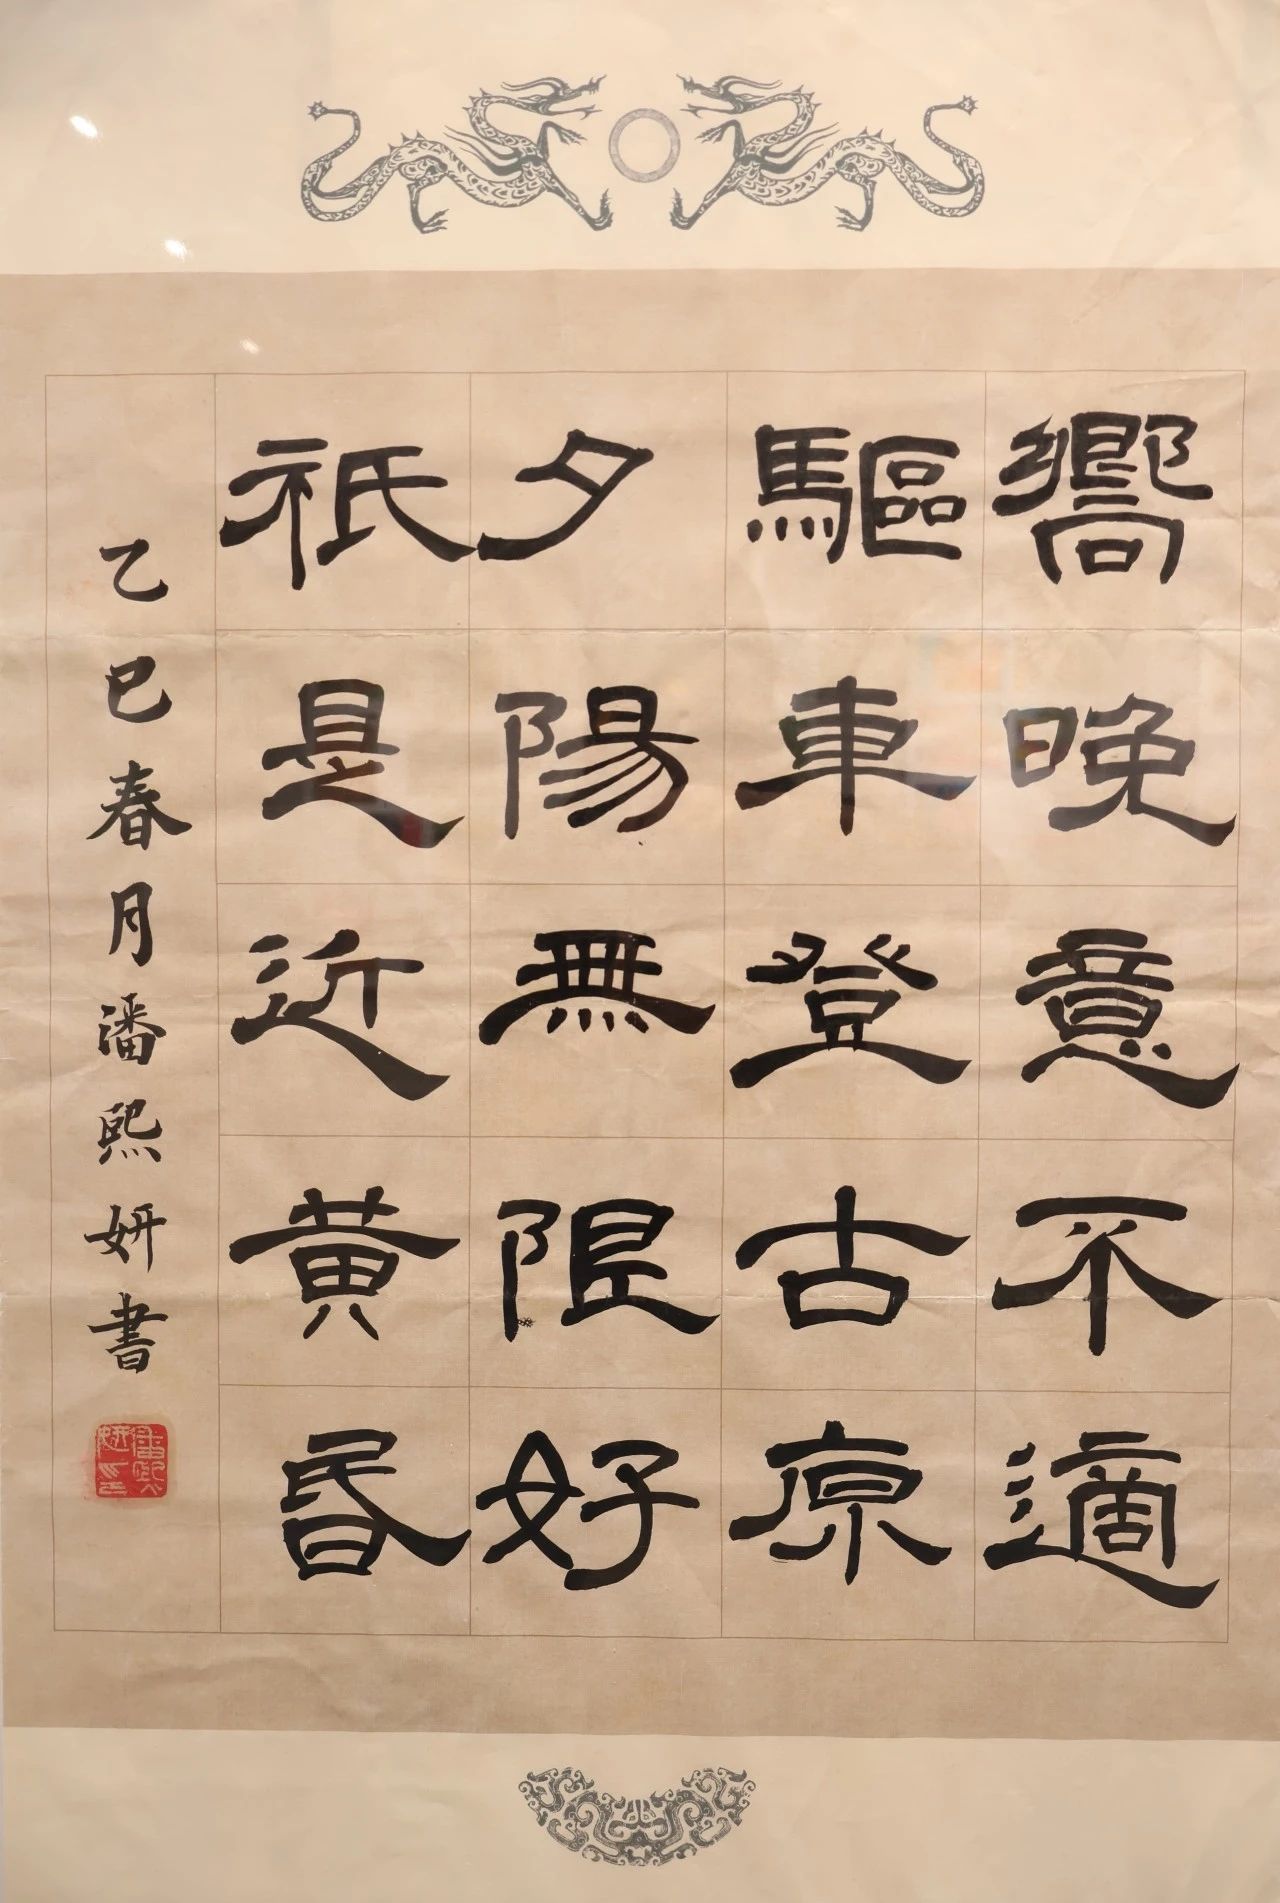 嚮晚意不適
驅車登古原
夕陽無限好
祇是近黃昏
乙巳春月潘熙妍書